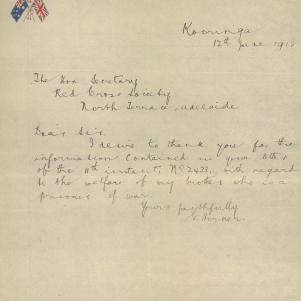 Kooringa
12th June 1918
The Hon Secretary
Red Cross Society
North Terrace, Adelaide
Dear Sir.
I desire to thank you for the
information contained in your letter
of the 11th instant, No 2433, with regard
to the welfare of my brother who is a
prisoner of war.
Yours faithfully